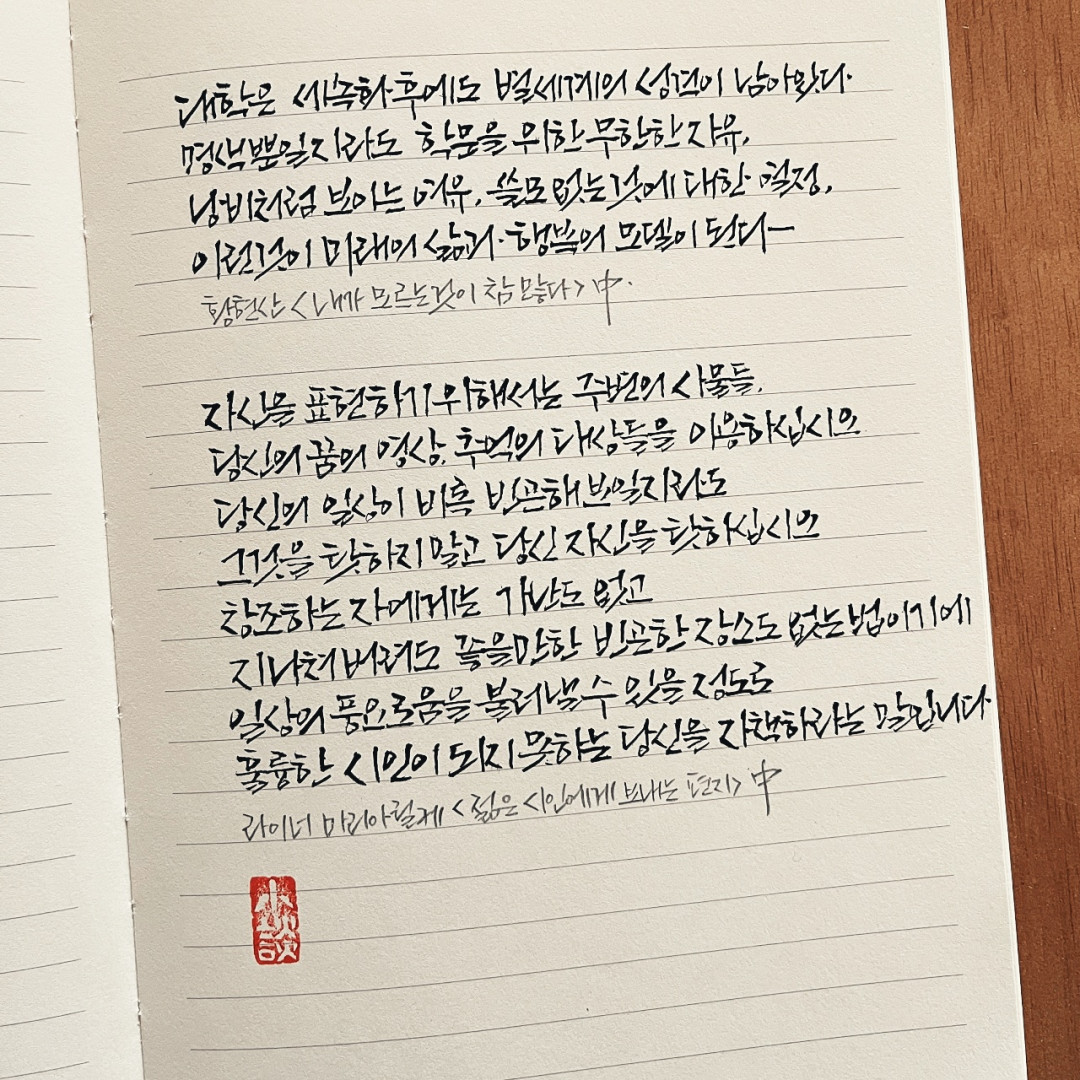 대학은 세속화 후에도 별세계의 성격이 남아있다.
명색뿐일지라도 학문을 위한 무한한 자유,
낭비처럼 보이는 여유, 쓸모없는것에 대한 열정,
이런것이 미래의 삶과 행복의 모델이 된다ㅡ
황현산 <내가 모르는것이 참 많다> 中.
자신을 표현하기 위해서는 주변의 사물들,
당신의 꿈의 영상, 추억의 대상들을 이용하십시오
당신의 일상이 비록 빈곤해 보일지라도
그것을 탓하지 말고 당신 자신을 탓하십시오
창조하는 자에게는 가난도 없고
지나쳐버려도 좋을만한 빈곤한 장소도 없는법이기에
일상의 풍요로움을 불러낼 수 있을 정도로
훌륭한 시인이 되지 못하는 당신을 자책하라는 말입니다.
라이너 마리아릴케 <젊은 시인에게 보내는 편지> 中